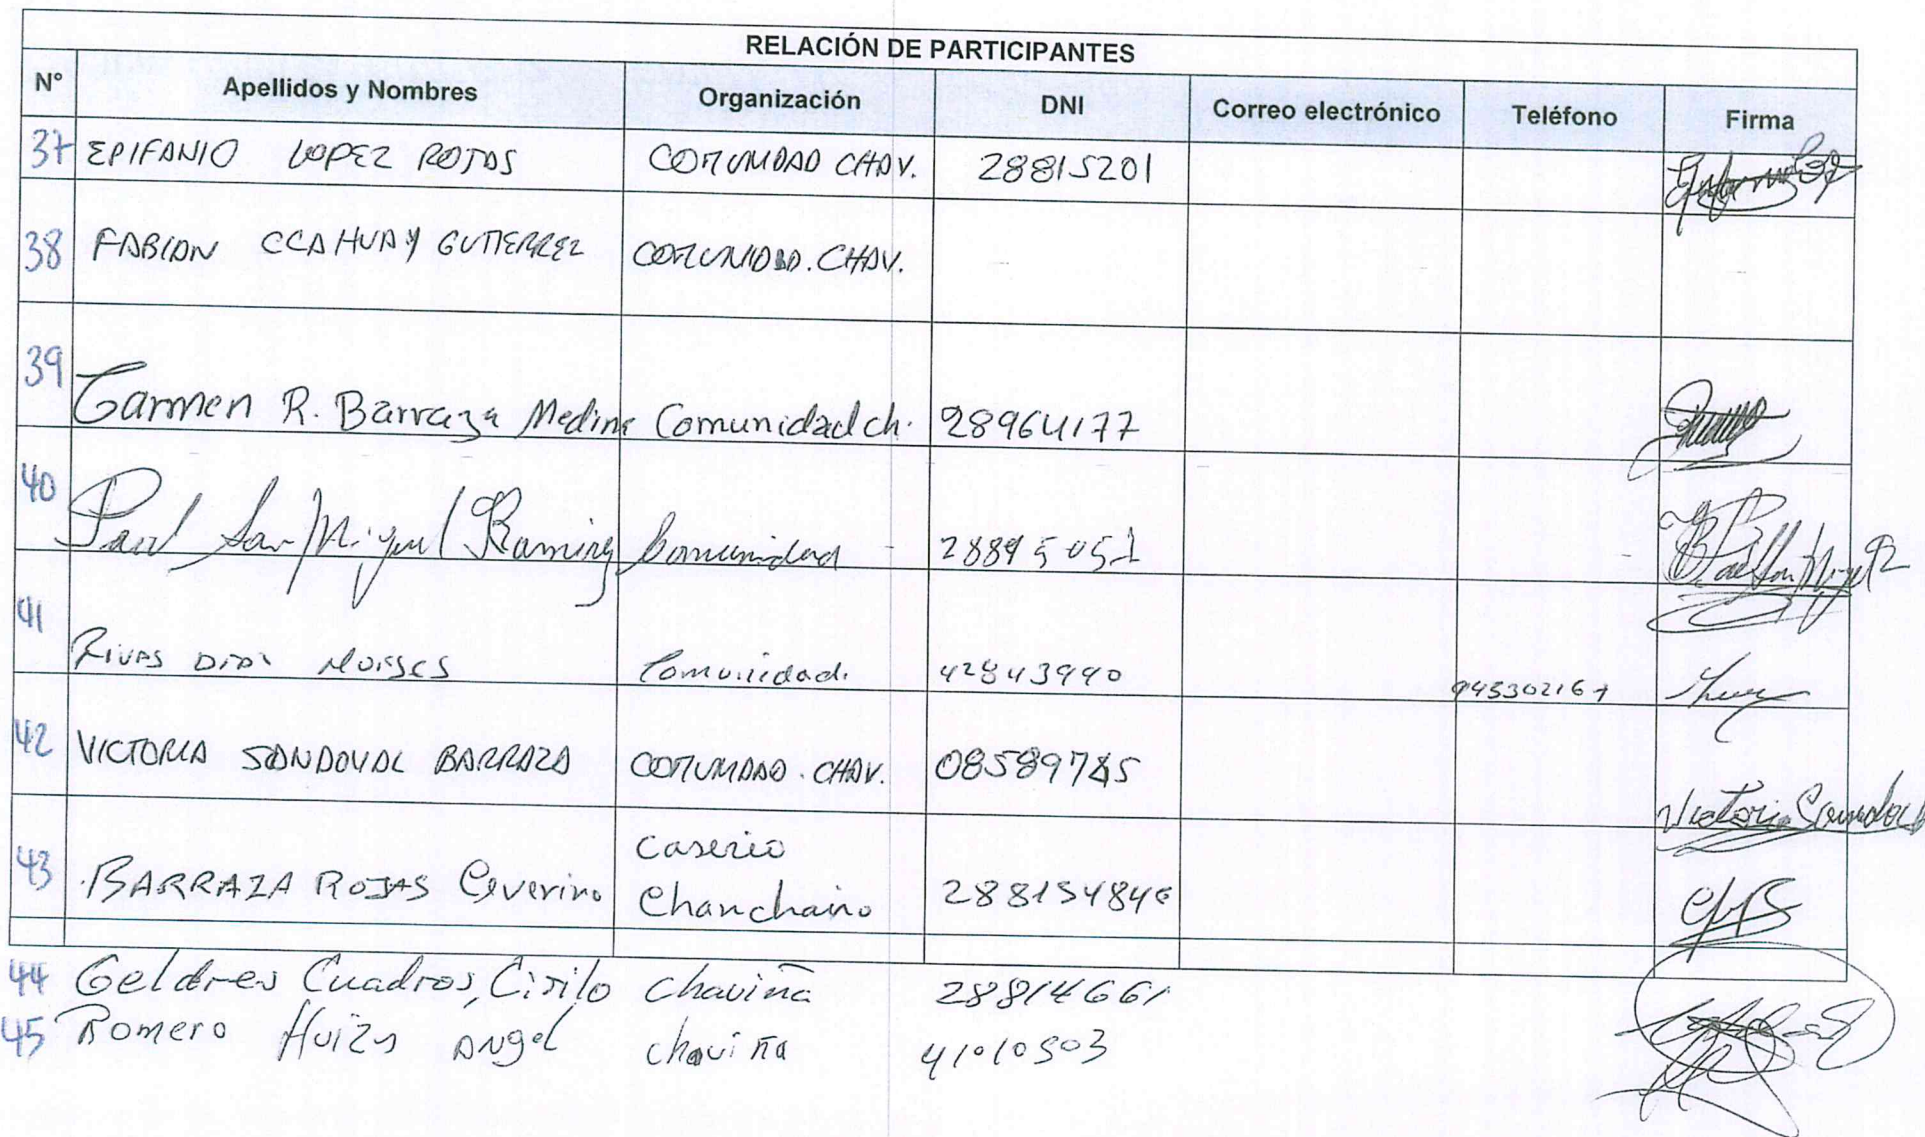 RELACIÓN DE PARTICIPANTES
N° Apellidos y Nombres Organización DNI Correo electrónico Teléfono Firma
37 EPIFANIO LOPEZ ROJAS COMUNIDAD CHAV. 28815201
38 FABIAN CCAHUAY GUTIERREZ COMUNIDAD. CHAV.
39 Carmen R. Barraza Medina Comunidad ch. 28964177
40 Paul San Miguel Ramirez Comunidad
41 Rivas Moises Comunidad. 42843990
42 VICTORIA SANDOVAL BARRAZA COMUNIDAD. CHAV. Victoria
43 BARRAZA ROJAS Ceverino Caserio
Chanchaino
44 Geldres Cuadros, Cirilo Chaviña 28814661
45 Romero Angel chaviña 41010503